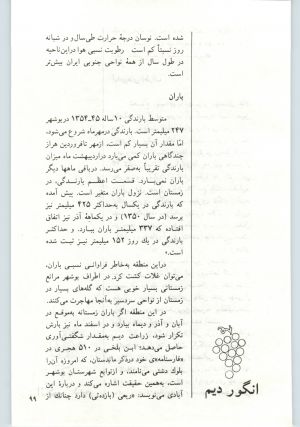 شده است. نوسان درجه حرارت طی سال و در شبانه
روز نسبتاً کم است. رطوبت نسبی هوا در این ناحیه
در طول سال از همهٔ نواحی جنوبی ایران بیش‌تر
است.
باران
متوسط بارندگی ۱۰ ساله ۴۵ـ۱۳۵۴ در بوشهر
۲۴۷ میلیمتر است. بارندگی در مهرماه شروع می‌شود،
امّا مقدار آن بسیار کم است، از مهر تا فروردین هر از
چندگاهی باران کمی می‌بارد در اردیبهشت ماه میزان
بارندگی تقریباً به صفر می‌رسد. در باقی ماهها دیگر
باران نمی‌بارد. قسمت اعظم بارندگی، در
زمستان است. نزول باران متغیر است. پیش آمده
که بارندگی در یکسال به حداکثر ۴۲۵ میلیمتر نیز
برسد (در سال ۱۳۵۰) و در یکماههٔ آذر نیز اتفاق
افتاده که ۳۳۷ میلیمتر باران ببارد. و حداکثر
بارندگی در یك روز ۱۵۲ میلیمتر نیز ثبت شده
است.
در این منطقه به خاطر فراوانی نسبی باران،
می‌توان غلات کشت کرد. در اطراف بوشهر مراتع
زمستانی بسیار خوبی هست که گله‌های بسیار در
زمستان از نواحی سردسیر به آنجا مهاجرت می‌کنند.
در این منطقه اگر باران زمستانه به موقع در
آبان و آذر و دیماه ببارد و در اسفند ماه نیز بارش
تکرار شود، زراعت دیم به مقدار شگفتی‌آوری
حاصل می‌دهد؛ ابن بلخی در ۵۱۰ هجری در
«فارسنامه»ی خود در ذکر ماندستان، که امروزه آن را
بلوك دشتی می‌نامند، و از توابع شهرستان بوشهر
است، به همین حقیقت اشاره می‌کند و دربارهٔ این
آبادی می‌نویسد: «ریعی (بازدهی) دارد چنانك از
انگور دیم
۹۹